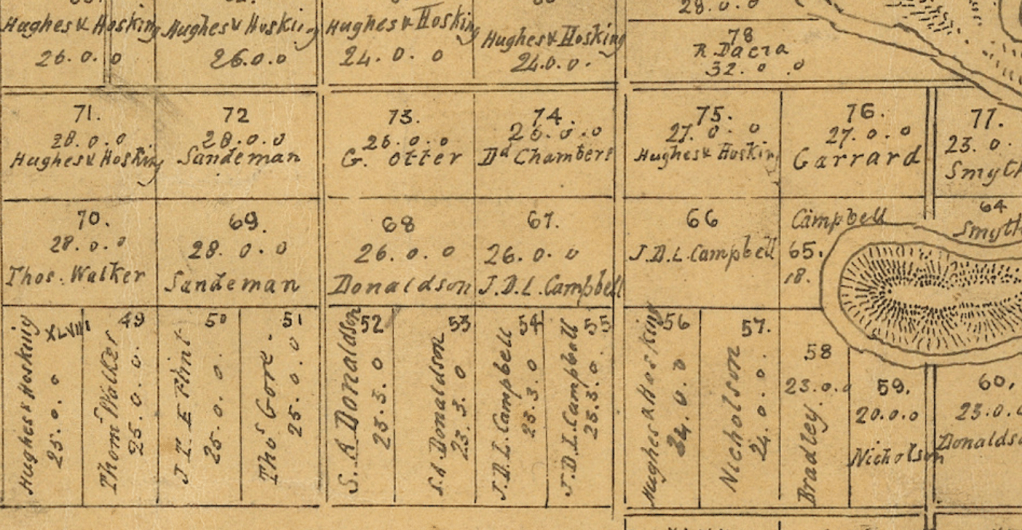 Hughes & Hosking
26.0.0
Hughes & Hosking
26.0.0
Hughes & Hosking
24.0.0
Hughes & Hosking
24.0.0.
28.0.0
78
R. Dacra
32.0.0
71.
28.0.0
Hughes & Hosking
72
28.0.0
Sandeman
73.
26.0.0
G. Otter
74.
26.0.0
Dd Chambers
75.
27.0.0
Hughes & Hosking
76.
27.0.0
Garrard
77.
23.0.
Smyth
70.
28.0.0
Thos. Walker
69.
28.0.0
Sandeman
68
26.0.0
Donaldson
67.
26.0.0
J.D.L. Campbell
66
J.D.L. Campbell
Campbell
65.
18.
64
Smyth
XLVIII
Hughes & Hosking
25.0.0
49
Thoms Walker
25.0.0
50
J T E Flint
25.0.0
51
Thos Gore.
25.0.0
52
S.A Donaldson
23.3.0
53
S.A Donaldson
23.3.0
54
J.D.L. Campbell
23.3.0
55
J.D.L. Campbell
23.3.0
56
Hughes & Hosking
24.0.0
57.
Nicholson
24.0.0
58
23.0.0
Bradley.
59.
20.0.0
Nicholson
60.
23.0.0
Donalds